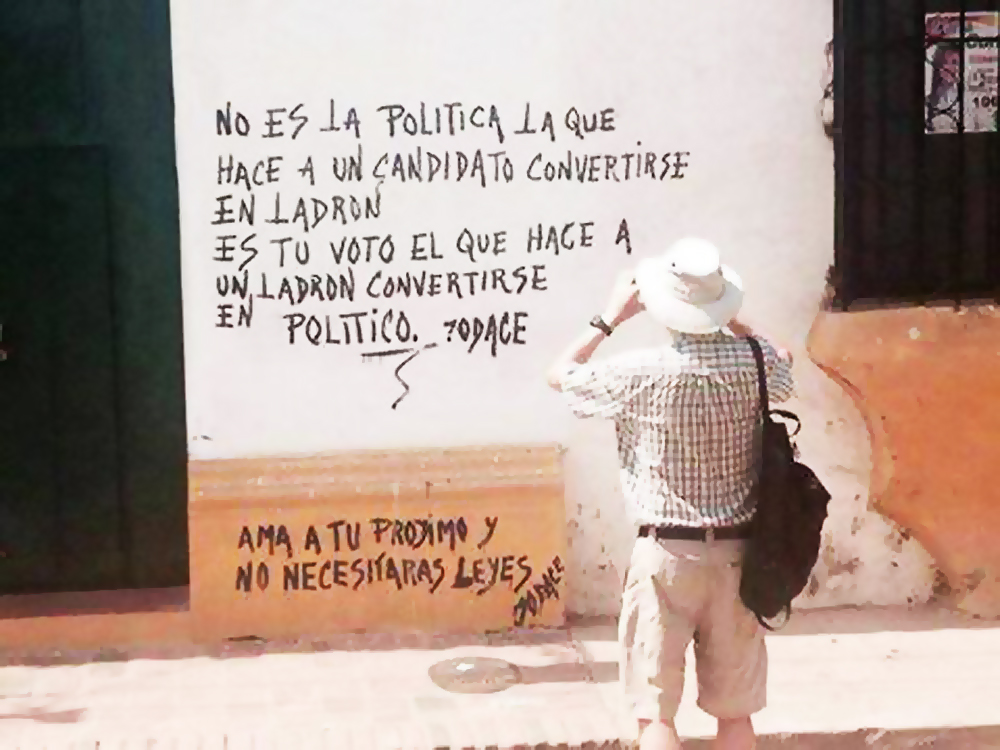 NO ES LA POLITICA LA QUE
HACE A UN CANDIDATO CONVERTIRSE
EN LADRON
ES TU VOTO EL QUE HACE A
UN LADRON CONVERTIRSE
EN POLITICO. JODACE
AMA A TU PROXIMO Y
NO NECESITARAS LEYES
JODACE
100